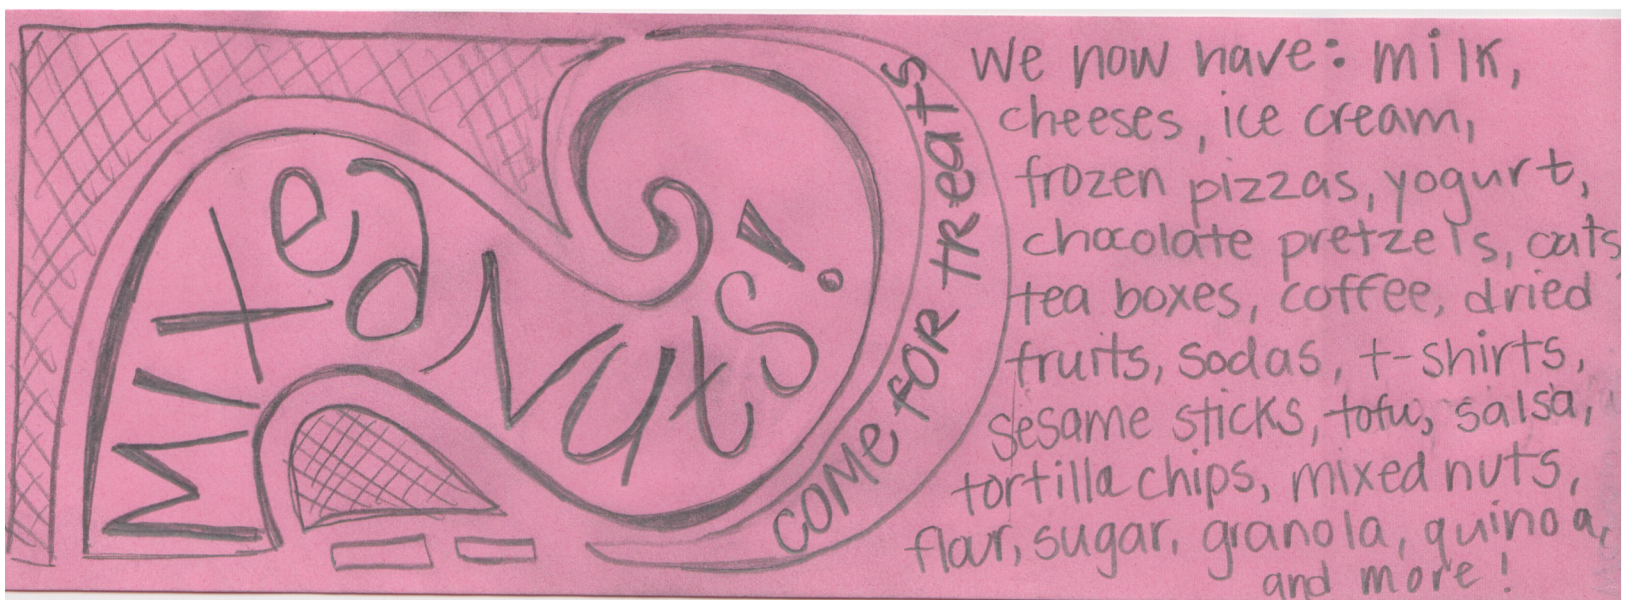 Mixed Nuts!
COME FOR TREATS
We now have: milk,
cheeses, ice cream,
frozen pizzas, yogurt,
chocolate pretzels, oats
tea boxes, coffee, dried
fruits, sodas, t-shirts,
sesame sticks, tofu, salsa,
tortilla chips, mixed nuts,
flour, sugar, granola, quinoa,
and more!